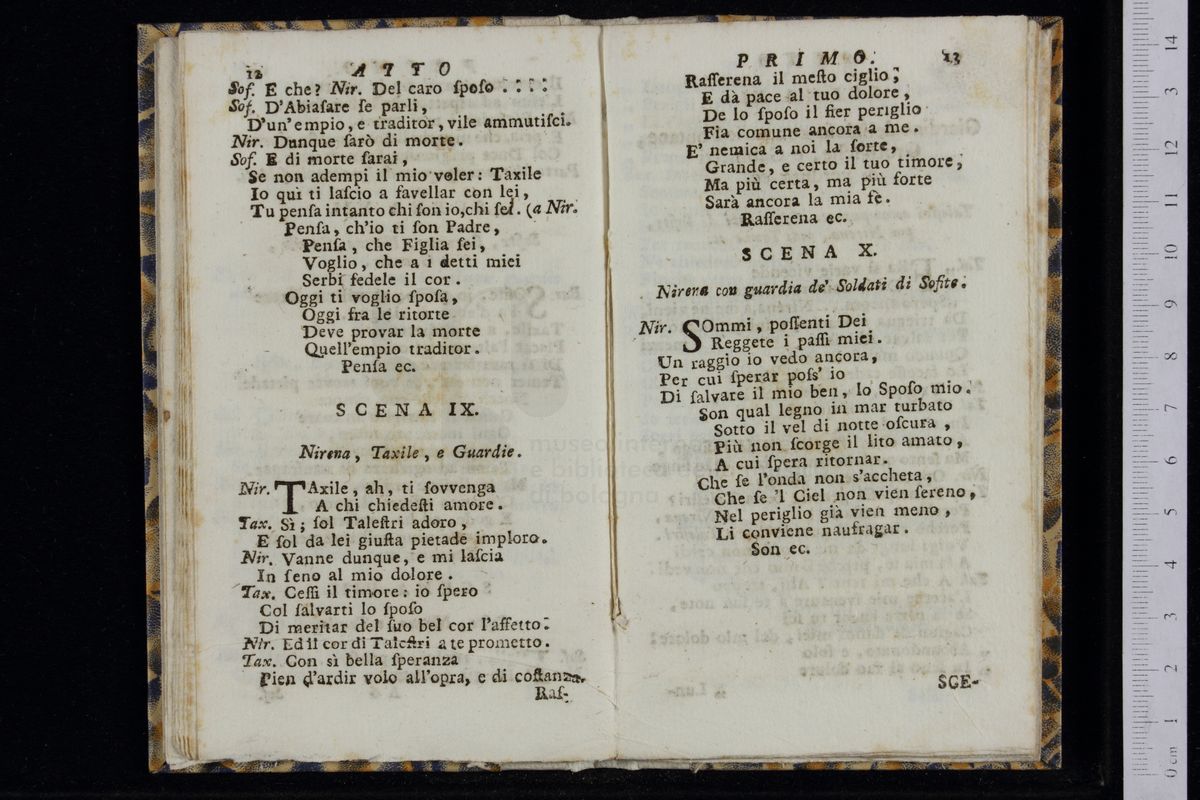 12 ATTO
Sof. E che? Nir. Del caro ſpoſo : : : :
Sof. D'Abiaſare ſe parli,
D'un'empio, e traditor, vile ammutiſci.
Nir. Dunque ſarò di morte.
Sof. E di morte ſarai,
Se non adempi il mio voler: Taxile
Io quì ti laſcio a favellar con lei,
Tu penſa intanto chi ſon io, chi ſei. (a Nir.
Penſa, ch'io ti ſon Padre,
Penſa, che Figlia ſei,
Voglio, che a i detti miei
Serbi fedele il cor.
Oggi ti voglio ſpoſa,
Oggi fra le ritorte
Deve provar la morte
Quell'empio traditor.
Penſa ec.
SCENA IX.
Nirena, Taxile, e Guardie.
Nir. TAxile, ah, ti ſovvenga
A chi chiedeſti amore.
Tax. Sì; ſol Taleſtri adoro,
E ſol da lei giuſta pietade imploro.
Nir. Vanne dunque, e mi laſcia
In ſeno al mio dolore.
Tax. Ceſſi il timore: io ſpero
Col ſalvarti lo ſpoſo
Di meritar del ſuo bel cor l'affetto.
Nir. Ed il cor di Taleſtri a te prometto.
Tax. Con sì bella ſperanza
Pien d'ardir volo all'opra, e di coſtanza.
Raſ-
PRIMO. 13
Raſſerena il meſto ciglio;
E dà pace al tuo dolore,
De lo ſpoſo il fier periglio
Fia comune ancora a me.
E' nemica a noi la ſorte,
Grande, e certo il tuo timore;
Ma più certa, ma più forte
Sarà ancora la mia fè.
Raſſerena ec.
SCENA X.
Nirena con guardia de' Soldati di Sofite.
Nir. SOmmi, poſſenti Dei
Reggete i paſſi miei.
Un raggio io vedo ancora,
Per cui ſperar poſs' io
Di ſalvare il mio ben, lo Spoſo mio.
Son qual legno in mar turbato
Sotto il vel di notte oſcura,
Più non ſcorge il lito amato,
A cui ſpera ritornar.
Che ſe l'onda non s'accheta,
Che ſe 'l Ciel non vien ſereno,
Nel periglio già vien meno,
Li conviene naufragar.
Son ec.
SCE-
museo interna
e bibliote
di bologna
0 cm 1 2 3 4 5 6 7 8 9 10 11 12 3 14